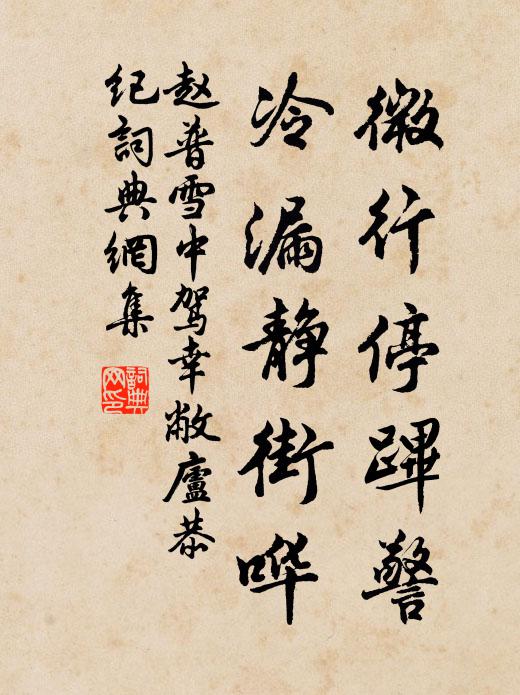 微行停蹕警
冷漏静街哗
赵普雪中驾幸敝廬恭
纪詞典網集
詞典网印